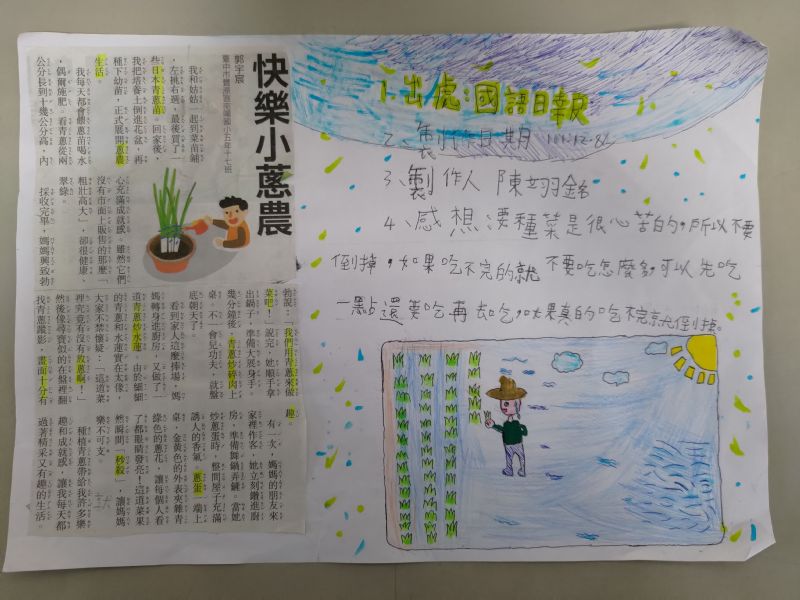 快樂小蔥農
郭宇宸
臺中市豐原區南陽國小五年十七班
我和姑姑一起到菜苗鋪
，左挑右選，最後買了一
些日本青蔥苗。回家後，
我把培養土倒進花盆，再
種下幼苗，正式展開蔥農
生活。
我每天都會餵蔥苗喝水
，偶爾施肥。看青蔥從兩
公分長到十幾公分高，內
心充滿成就感。雖然它們
沒有市面上販售的那麼「
粗壯高大」，卻很健康、
翠綠。
採收完畢，媽媽興致勃
勃說：「我們用青蔥來做
菜吧！」說完，她順手拿
出鍋子，準備大展身手。
幾分鐘後，青蔥炒碎肉上
桌，不一會兒功夫，就盤
底朝天了。
看到家人這麼捧場，媽
媽轉身進廚房，又做了一
道青蔥炒水蓮。由於細細
的青蔥和水蓮實在太像，
大家不禁懷疑：「這道菜
裡究竟有沒有放蔥啊！」
然後像尋寶似的在盤裡翻
找青蔥蹤影，畫面十分有
趣。
有一次，媽媽的朋友來
家裡作客，她立刻鑽進廚
房，準備舞鍋弄鏟。當她
炒蔥蛋時，整間屋子充滿
誘人的香氣。蔥蛋一端上
桌，金黃色的外表夾雜青
綠色的蔥花，讓每個人看
了都眼睛發亮！這道菜果
然瞬間「秒殺」，讓媽媽
樂不可支。
種植青蔥帶給我許多樂
趣和成就感，讓我每天都
過著精采又有趣的生活。
1、出處：國語日報
2、製作日期
3、製作人 陳翊銘
4、感想 要種菜是很心苦的，所以不要
倒掉，如果吃不完的就 不要吃怎麼多，可以先吃
一點還要吃再去吃，如果真的吃不完就倒掉。